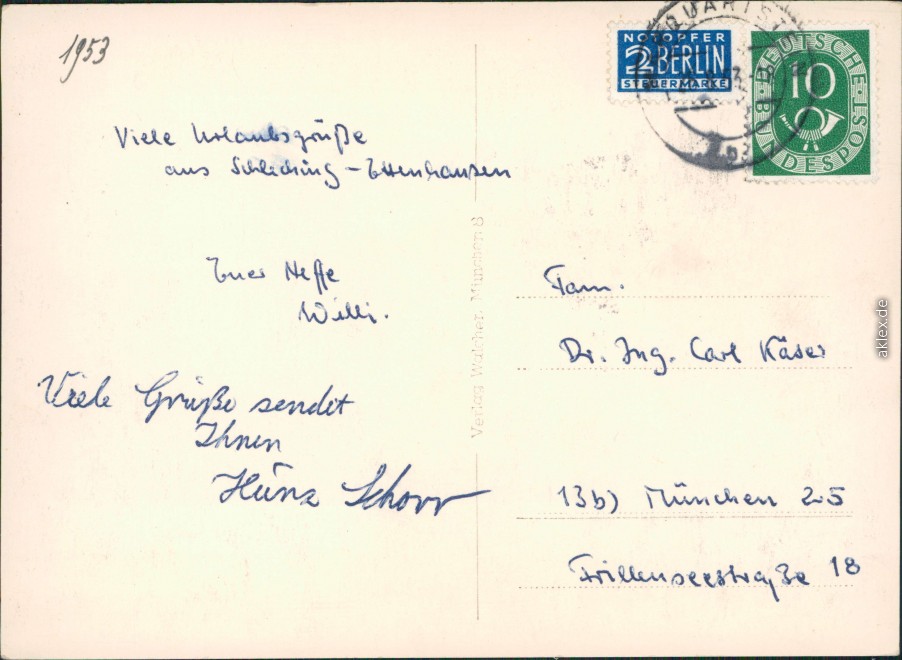 1953
NOTOPFER
2 BERLIN
STEUERMARKE
DEUTSCHE
BUNDESPOST
10
Viele Urlaubsgrüße
aus Schleching-Ettenhausen
Euer Neffe
Willi.
Viele Grüße sendet
Ihnen
Schorr
Verlag Walcher, München 8
Fam.
Dr. Ing. Carl Käser
13b) München 25
Frillenseestraße 18
aklex.de